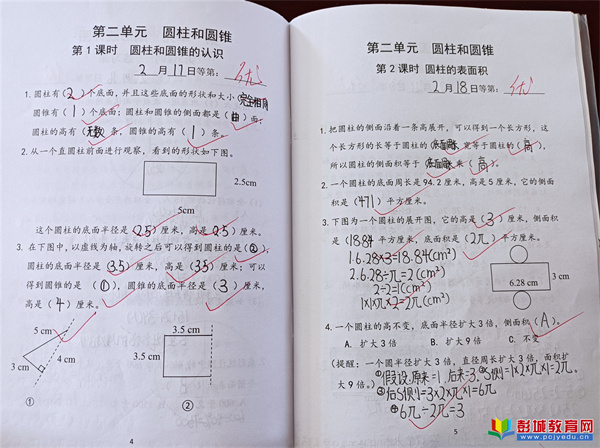 第二单元 圆柱和圆锥
第 1 课时 圆柱和圆锥的认识
2 月 17 日等第: 优
1. 圆柱有( 2 )个底面,并且这些底面的形状和大小(完全相同)
圆锥有( 1 )个底面;圆柱和圆锥的侧面都是(曲)面;
圆柱的高有(无数)条,圆锥的高有( 1 )条。
2. 从一个直圆柱前面进行观察,看到的形状如下图。
2.5cm
5cm
这个圆柱的底面半径是(2.5)厘米,高是(2.5)厘米。
3. 在下图中,以虚线为轴,旋转之后可以得到圆柱的是(②),
圆柱的底面半径是(3.5)厘米,高是(3.5)厘米;可以
得到圆锥的是(①),圆锥的底面半径是( 3 )厘米,
高是( 4 )厘米。
5 cm
4 cm
3 cm
①
3.5 cm
3.5 cm
②
4
第二单元 圆柱和圆锥
第 2 课时 圆柱的表面积
2 月 18 日等第: 优
1. 把圆柱的侧面沿着一条高展开,可以得到一个长方形,这
个长方形的长等于圆柱的(底面周长),宽等于圆柱的(高),
所以圆柱的侧面积等于(底面周长)乘(高)。
2. 一个圆柱的底面周长是 94.2 厘米,高是 5 厘米,它的侧面
积是(471)平方厘米。
3. 下图为一个圆柱的展开图,它的高是( 3 )厘米,侧面积
是(18.84)平方厘米,底面积是(2π)平方厘米。
1. 6.28×3=18.84(cm²)
2. 6.28÷π=2(cm²)
2÷2=1(cm²)
1×1×π×2=2π(cm²)
6.28 cm
3 cm
4. 一个圆柱的高不变,底面半径扩大 3 倍,侧面积( A )。
A. 扩大 3 倍 B. 扩大 9 倍 C. 不变
(提醒:一个圆半径扩大 3 倍,直径周长扩大 3 倍,面积扩
大 9 倍。)
①假设:原来=1,后来=3.②S侧=1×2×π×1=2π.
③后S侧=3×2×π×1=6π
④6π÷2π=3
5
彭城教育网
www.pcjyedu.cn